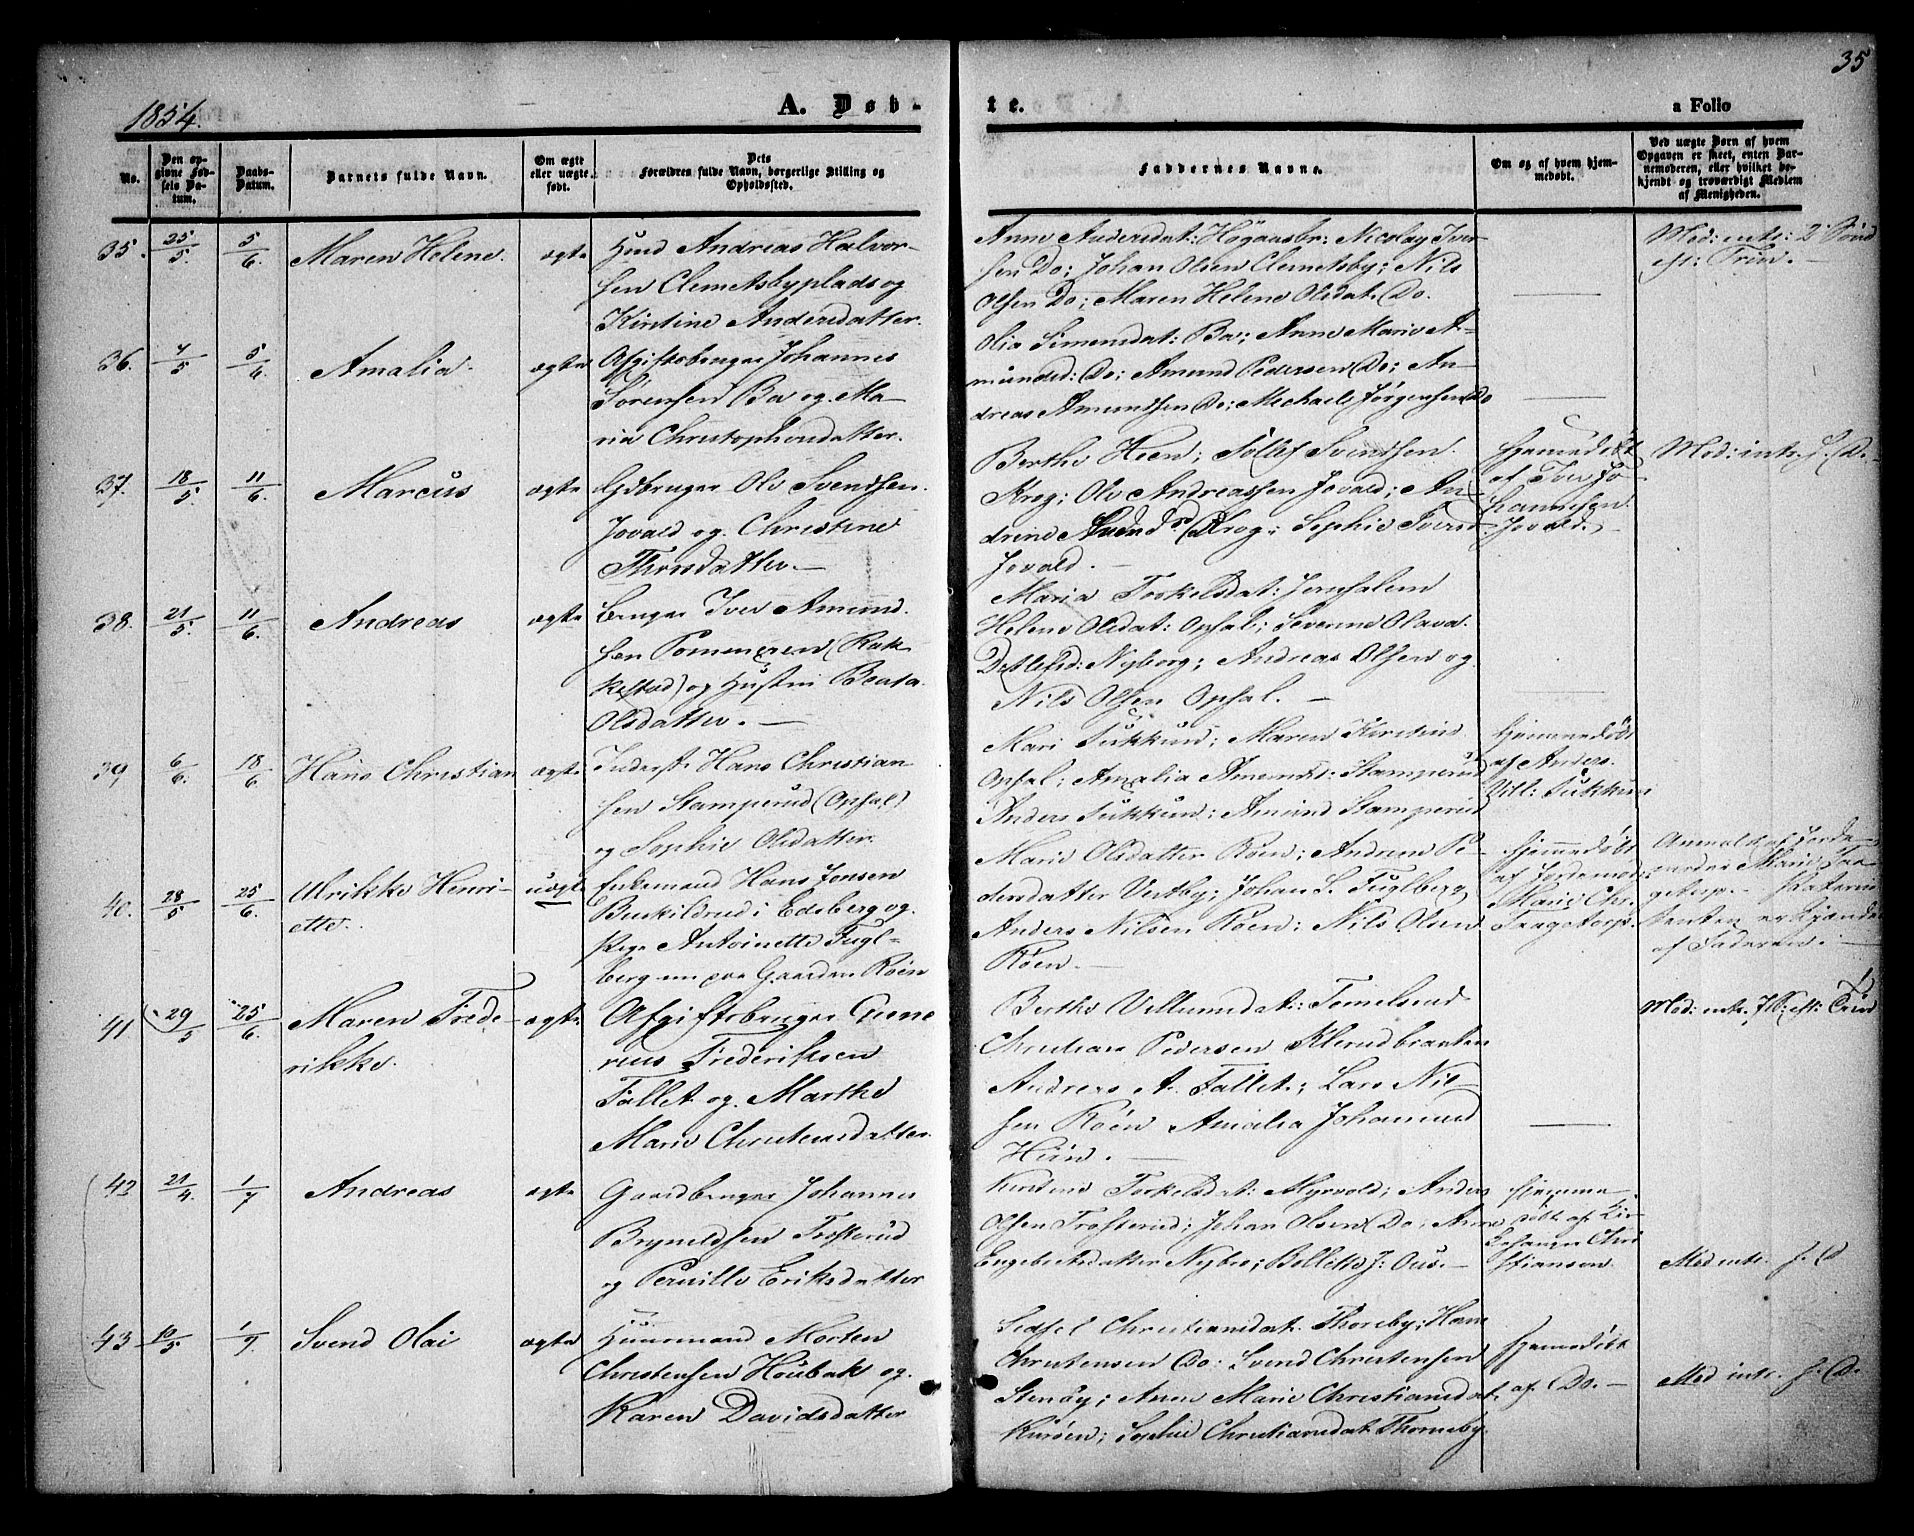 1854.
A. Døb-
te.
a Folio
35
No.
Den op-
givne Fød-
sels Da-
tum.
Daabs-
Datum.
Barnets fulde Navn.
Om ægte
eller uægte
født.
Dets
Forældres fulde Navn, borgerlige Stilling og
Opholdssted.
Faddernes Navne.
Om og af hvem hjem-
medøbt.
Ved uægte Børn af hvem
Opgaven er skeet, enten Bar-
nemoderen, eller hvilket be-
kjendt og troværdigt Medlem
af Menigheden.
35. 25/5. 5/6. Maren Helene. ægte
Husmd Andreas Halvor-
sen Clemetsbyplads og
Kirstine Andersdatter.
Anne Andersdat: Høgaasbr: Nicolay Iver-
sen Do; Johan Olsen Clemetsby; Nils
Olsen Do; Maren Helene Olsdat. Do.
Med: intr: 2 Sønd
eft: Trin.
36. 4/5 5/6. Amalia. ægte
Afgiftsbruger Johannes
Sørensen Bø og Ma-
ria Christophersdatter.
Olia Simensdat: Bø; Anne Marie A-
mundsd: Do; Amund Pedersen Do; An-
dreas Amundsen Do; Michael Jørgensen Do
37. 18/5. 11/6. Marcus ægte
Gdbruger Ole Svendsen
Jovald og Christine
Thorsdatter.
Berthe Heen; Tollef Svendsen
Krog; Ole Andreassen Jovald; An-
drine Svendsd Krog; Sophie Iversd
Jovald.
Hjemmedøbt
af Iver Jo-
hannesen
Jovald.
Med: intr. f. Do.
38. 21/5. 11/6. Andreas ægte
Bruger Iver Amund-
sen Pomeren (Rak-
kestad) og Hustru Beata
Olsdatter.
Maria Torkelsdat: Jerusalem
Helene Olsdat: Opsal; Severine Olava
Detlefsd: Nyborg; Andreas Olsen og
Nils Olsen Opsal.
39 6/6. 18/6 Hans Christian ægte
Inderst Hans Christian-
sen Stamperud (Opsal)
og Sophie Olsdatter.
Mari Tukkun; Maren Kirstine
Opsal; Amalia Amundsd: Stamperud
Anders Tukkun; Amund Stamperud
Hjemmedøbt
af Anders
Vill: Tukkun
40. 28/5 25/6. Ulrikke Henri-
ette. uægte
Enkemand Hans Jonsen
Buskildrud i Edsberg og
Pige Antoinette Fugl-
berg nu paa Gaarden Røen
Marie Olsdatter Røen; Andrea Pe-
dersdatter Vestby; Johan L. Fuglberg
Anders Nilsen Røen; Nils Olsen
Røen.
Hjemmedøbt
af Jordemoder
Marie Chr.
Taagetorp.
Anmeldt af Jorde-
moder Marie Taa-
getorp. Paterni-
teten erkjendt
af Faderen.
41. 29/5 25/6. Maren Frede-
rikke. ægte
Afgiftsbruger Gune-
rius Frederiksen
Fallet og Marthe
Marie Christensdatter.
Berthe Villumsdat: Tomelsrud
Christian Pedersen Klerudbraaten
Andreas A. Fallet; Lars Nil-
sen Røen Amalia Johannesd
Heen.
Med: intr. 7 S: eft: Trin
42 21/4. 1/7 Andreas ægte
Gaardbruger Johannes
Brynildsen Trosterud
og Pernille Eriksdatter
Kirstine Torkelsdat: Myrvold; Anders
Olsen Trosterud; Johan Olsen Do; Anne
Engebretsdatter Nybro; Bollette J: Ous.
Hjemme-
døbt af Kir-
kesanger Chri-
stiansen.
Med intr. f. D
43 10/5 1/7. Svend Olai ægte
Huusmand Morten
Christensen Houbak og
Karen Davidsdatter
Sidsel Christiansdat. Thorsby; Hans
Christensen Do: Svend Christensen
Stenby; Anne Marie Christiansdat.
Kurøen; Sophie Christiansdat Thornsby
Hjemmedøbt
af Do.
Med intr. f. Do.